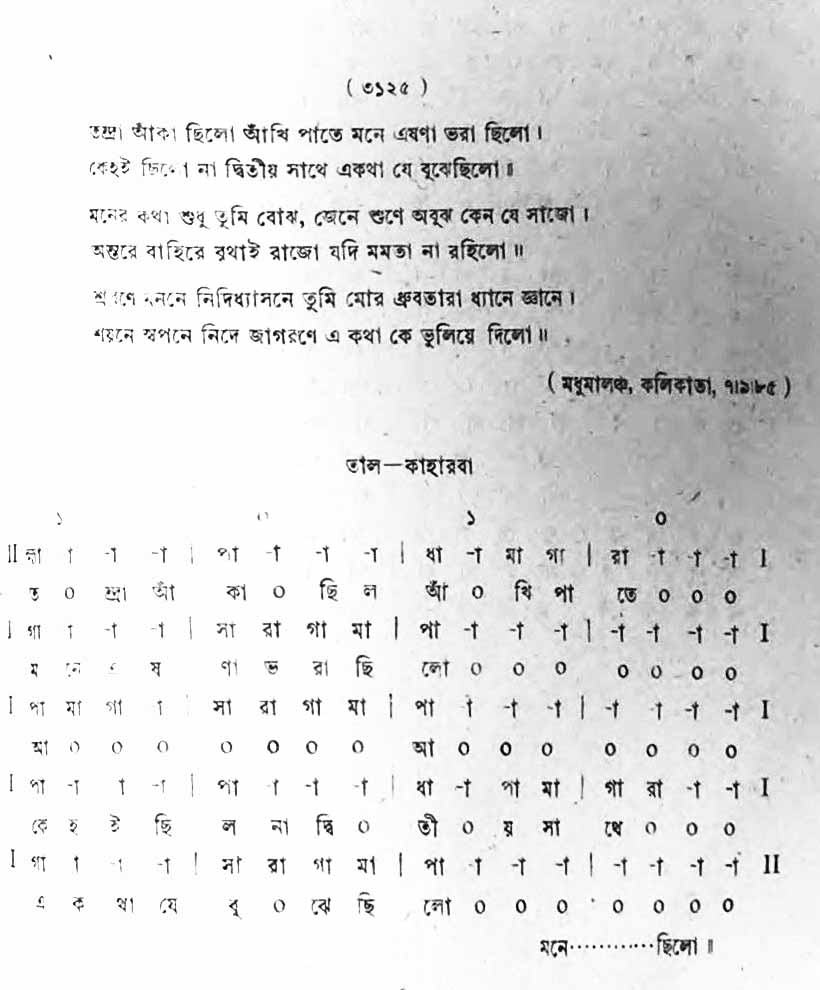 ( ৩১২৫ )
তন্দ্রা আঁকা ছিলো আঁখি পাতে মনে এষণা ভরা ছিলো।
কেহই ছিলো না দ্বিতীয় সাথে একথা যে বুঝেছিলো॥
মনের কথা শুধু তুমি বোঝ, জেনে শুণে অবুঝ কেন যে সাজো।
অন্তরে বাহিরে বৃথাই রাজো যদি মমতা না রহিলো॥
শ্রবণে মননে নিদিধ্যাসনে তুমি মোর ধ্রুবতারা ধ্যানে জ্ঞানে।
শয়নে স্বপনে নিদে জাগরণে এ কথা কে ভুলিয়ে দিলো॥
( মধুমালঞ্চ, কলিকাতা, ৭।৯।৮৫ )
তাল—কাহারবা
১ ০ ১ ০
II সা -া -া -া | পা -া -া -া | ধা -া মা গা | রা -া -া -া I
ত ০ ন্দ্রা আঁ কা ০ ছি ল আঁ ০ খি পা তে ০ ০ ০
I গা -া -া -া | সা রা গা মা | পা -া -া -া | -া -া -া -া I
ম নে এ ষ ণা ভ রা ছি লো ০ ০ ০ ০ ০ ০ ০
I পা মা গা -া | সা রা গা মা | পা -া -া -া | -া -া -া -া I
আ ০ ০ ০ ০ ০ ০ ০ আ ০ ০ ০ ০ ০ ০ ০
I পা -া -া -া | পা -া -া -া | ধা -া পা মা | গা রা -া -া I
কে হ ই ছি ল না দ্বি ০ তী ০ য় সা থে ০ ০ ০
I গা -া -া -া | সা রা গা মা | পা -া -া -া | -া -া -া -া II
এ ক থা যে বু ০ ঝে ছি লো ০ ০ ০ ০ ০ ০ ০
মনে············ছিলো॥